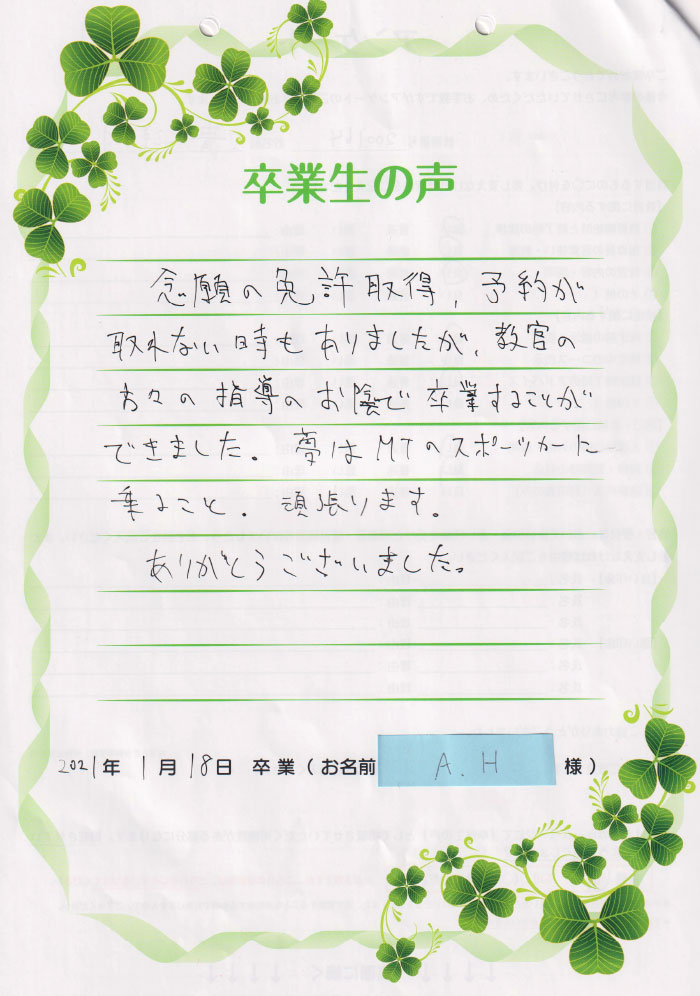 卒業生の声
念願の免許取得，予約が
取れない時もありましたが、教官の
方々の指導のお陰で卒業することが
できました。夢はMTのスポーツカーに
乗ること．頑張ります。
ありがとうございました。
2021年 1月 18日 卒業（お名前 A.H 様）